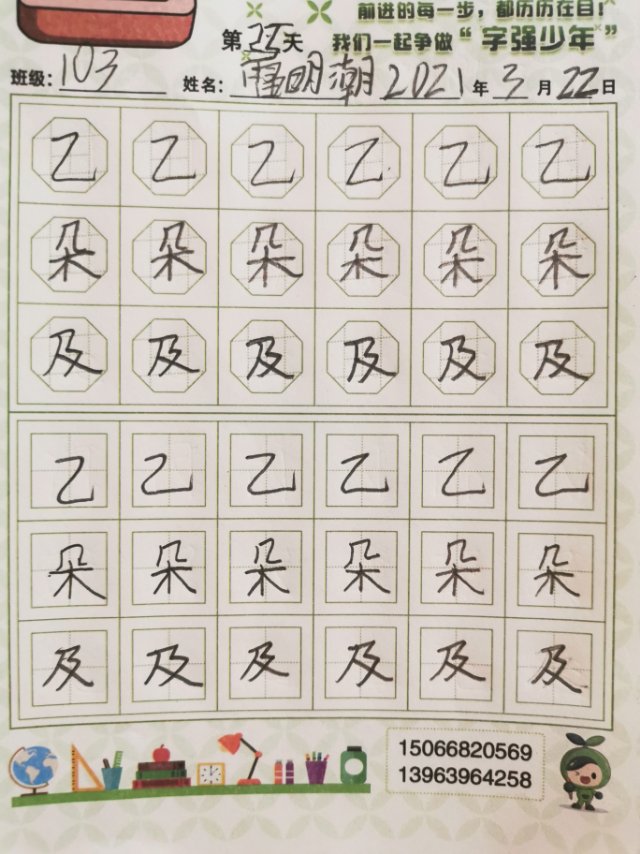 前进的每一步，都历历在目！
第25天 我们一起争做“字强少年”
班级：103 姓名：明潮 2021年3月22日
乙 乙 乙 乙 乙 乙
朵 朵 朵 朵 朵 朵
及 及 及 及 及 及
乙 乙 乙 乙 乙 乙
朵 朵 朵 朵 朵 朵
及 及 及 及 及 及
15066820569
13963964258